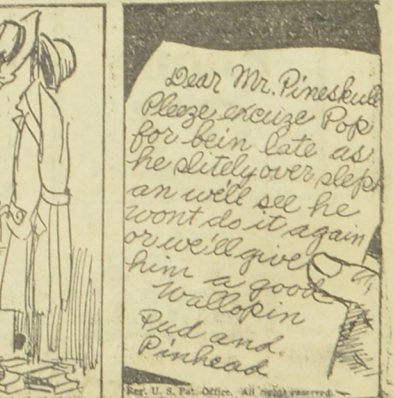 Dear Mr. Pineskull
Pleeze excuze Pop
for bein late as
he slitely over slept
an we'll see he
wont do it again
or we'll give
him a good
Wallopin
Pud and
Pinhead
Reg. U. S. Pat. Office. All rights reserved.